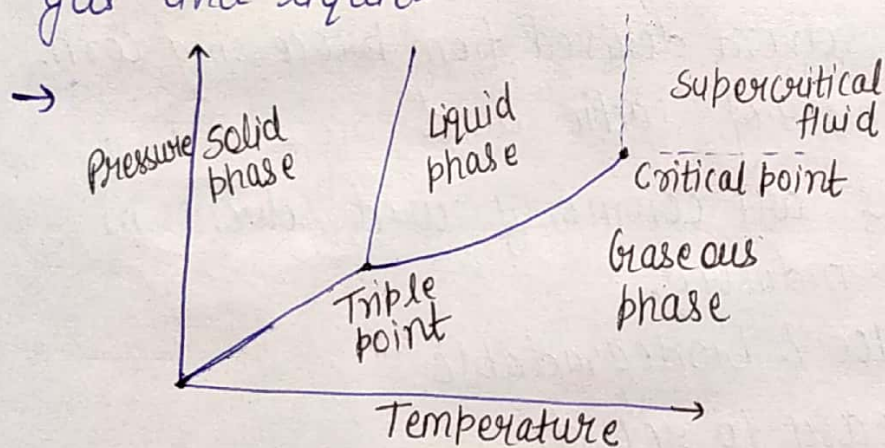 gas and liquid
→
Pressure
Solid
phase
Liquid
phase
Supercritical
fluid
Critical point
Gaseous
phase
Triple
point
Temperature